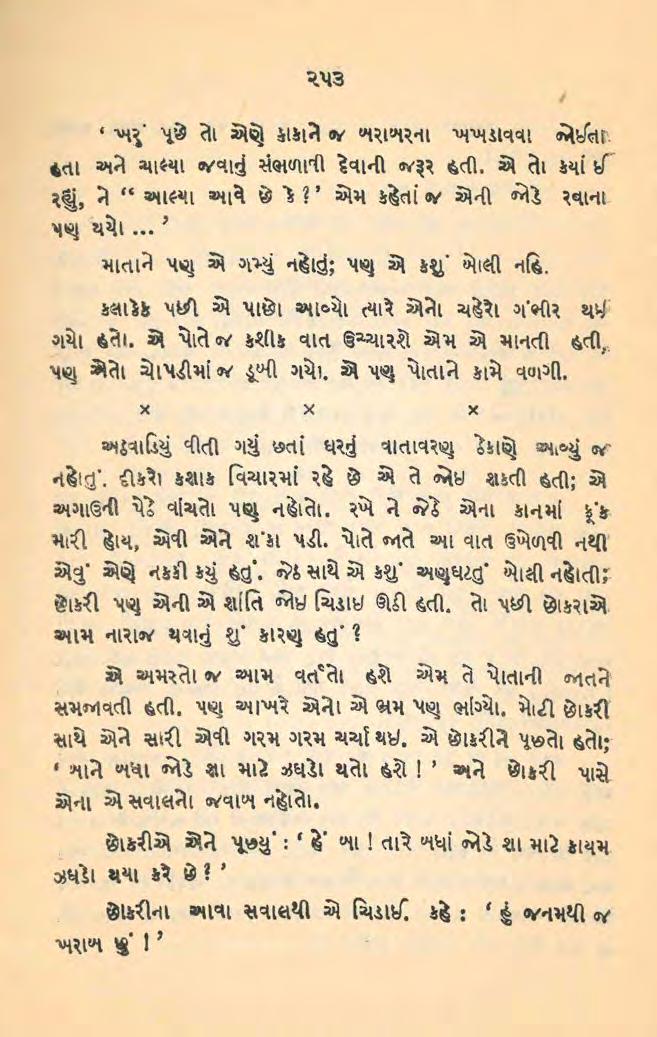 ૨૫૩
‘ ખરું પૂછે તો એણે કાકાને જ બરાબરના ખખડાવવા જોઈતા
હતા અને ચાલ્યા જવાનું સંભળાવી દેવાની જરૂર હતી. એ તો કયાં ઈ
રહ્યું, ને “ ચાલ્યા આવે છે કે ?’ એમ કહેતાં જ એની જોડે રવાના
પણ થયો ... ’
માતાને પણ એ ગમ્યું નહોતું; પણ એ કશું બોલી નહિ.
કલાકેક પછી એ પાછો આવ્યો ત્યારે એનો ચહેરો ગંભીર થઇ
ગયો હતો. એ પોતે જ કશીક વાત ઉચ્ચારશે એમ એ માનતી હતી,
પણ એતો ચોપડીમાં જ ડૂબી ગયો. એ પણ પોતાને કામે વળગી.
× × ×
અઠવાડિયું વીતી ગયું છતાં ઘરનું વાતાવરણ ઠેકાણે આવ્યું જ
નહોતું. દીકરો કશાક વિચારમાં રહે છે એ તે જોઇ શકતી હતી; એ
અગાઉની પેઠે વાંચતો પણ નહોતો. રખે ને જેઠે એના કાનમાં ફૂંક
મારી હોય, એવી એને શંકા પડી. પોતે જાતે આ વાત ઉખેળવી નથી
એવું એણે નકકી કર્યું હતું. જેઠ સાથે એ કશું અણઘટતું બોલી નહોતી;
છોકરી પણ એની એ શાંતિ જોઇ ચિડાઇ ઊઠી હતી. તો પછી છોકરાએ
આમ નારાજ થવાનું શું કારણ હતું ?
એ અમરતો જ આમ વર્તતો હશે એમ તે પોતાની જાતને
સમજાવતી હતી. પણ આખરે એનો એ ભ્રમ પણ ભાંગ્યો. મોટી છોકરી
સાથે એને સારી એવી ગરમ ગરમ ચર્ચા થઇ. એ છોકરીને પૂછતો હતો;
‘ બાને બધા જોડે શા માટે ઝઘડો થતો હશે ! ’ અને છોકરી પાસે
એના એ સવાલનો જવાબ નહોતો.
છોકરીએ એને પૂછયું : ‘ હેં બા ! તારે બધાં જોડે શા માટે કાયમ
ઝઘડો થયા કરે છે ? ’
છોકરીના આવા સવાલથી એ ચિડાઈ. કહે : ‘ હું જનમથી જ
ખરાબ છું ! ’